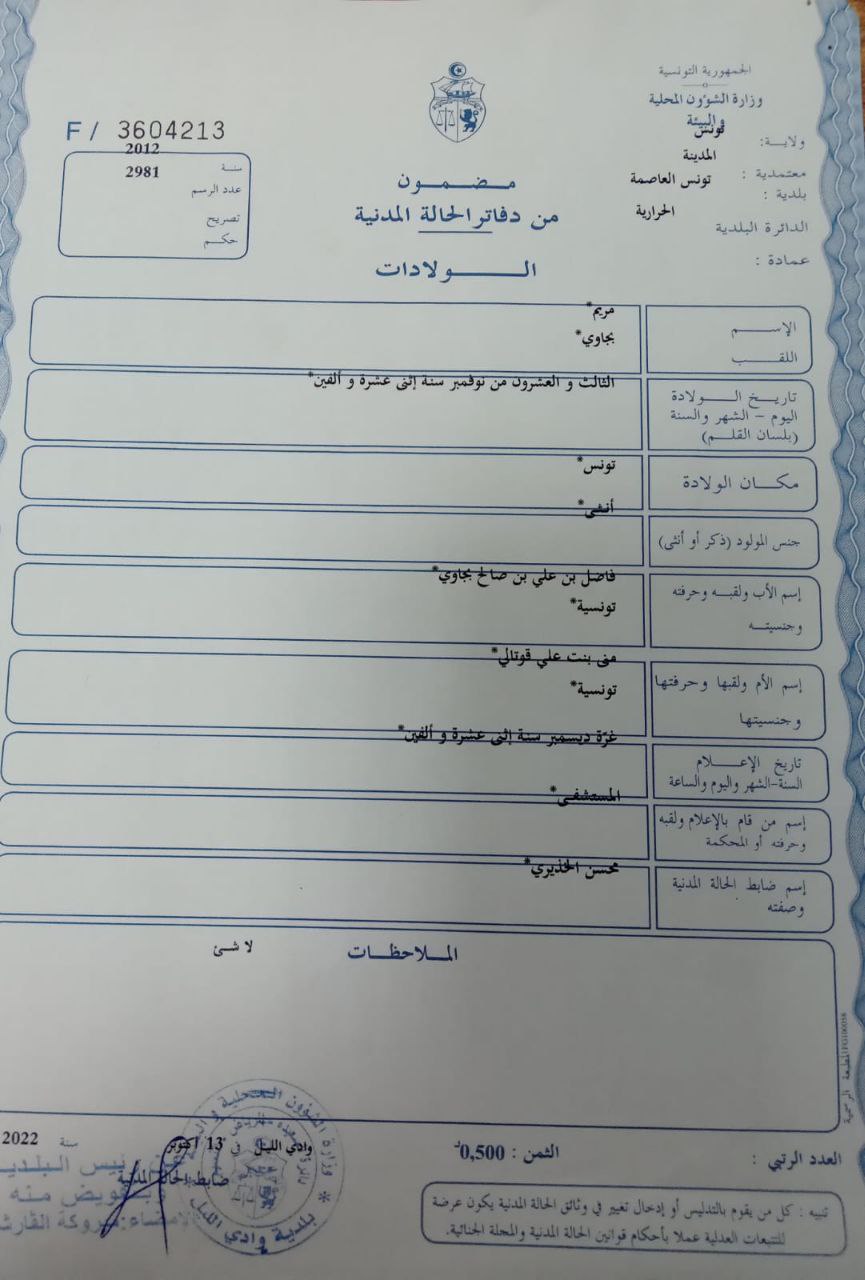 الجمهورية التونسية
وزارة الشؤون المحلية
والبيئة
ولايــة: تونس
معتمدية : المدينة
بلدية : تونس العاصمة
الدائرة البلدية الحرارية
عمادة :
F/ 3604213
سنة 2012
عدد الرسم 2981
تصريح
حكم
مضمون
من دفاتر الحالة المدنية
الولادات
الإسم مريم*
اللقب بجاوي*
تاريخ الولادة
اليوم - الشهر والسنة
(بلسان القلم)
الثالث و العشرون من نوفمبر سنة إثنى عشرة و ألفين*
مكان الولادة تونس*
جنس المولود (ذكر أو أنثى) أنثى*
إسم الأب ولقبه وحرفته
وجنسيته
فاضل بن علي بن صالح بجاوي*
تونسية*
إسم الأم ولقبها وحرفتها
وجنسيتها
منى بنت علي قوتالي*
تونسية*
تاريخ الإعلام
السنة-الشهر واليوم والساعة
غرّة ديسمبر سنة إثنى عشرة و ألفين*
إسم من قام بالإعلام ولقبه
وحرفته أو المحكمة
المستشفى*
إسم ضابط الحالة المدنية
وصفته
محسن الخذيري*
الملاحظات
لا شئ
المطبعة الرسمية FG100058
العدد الرتبي :
الثمن : 0,500د
وادي الليل في 13 أكتوبر سنة 2022
ضابط الحالة المدنية
رئيس البلدية
بتفويض منه
الامضاء: مبروكة
وزارة الشؤون المحلية و
بلدية وادي الليل
تنبيه : كل من يقوم بالتدليس أو إدخال تغيير في وثائق الحالة المدنية يكون عرضة
للتتبعات العدلية عملا بأحكام قوانين الحالة المدنية والمجلة الجنائية.